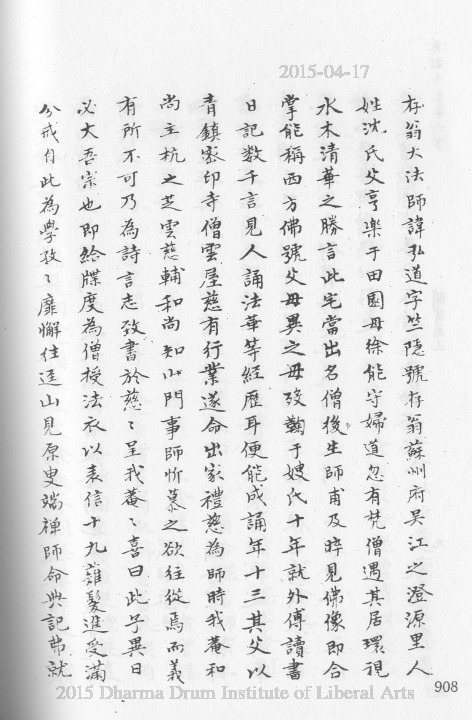 2015-04-17
存翁大法師諱弘道字竺隱號存翁蘇州府吳江之澄源里人
姓沈氏父亨樂于田園母徐能守婦道忽有梵僧過其居環視
水木清華之勝言此宅當出名僧後生師甫及晬見佛像即合
掌能稱西方佛號父母異之母歿鞠于嫂氏十年就外傅讀書
日記数千言見人誦法華等經歷耳便能成誦年十三其父以
青鎮密印寺僧雲屋慈有行業遂命出家禮慈為師時我菴和
尚主杭之芝雲慈輔和尚知山門事師忻慕之欲往從焉而義
有所不可乃為詩言志致書於慈〻呈我菴〻喜曰此子異日
必大吾宗也即給牒度為僧授法衣以表信十九薙髮進受滿
分戒自此為學孜〻靡懈住逕山見原叟端禪師命典記弗就
908
2015 Dharma Drum Institute of Liberal Arts